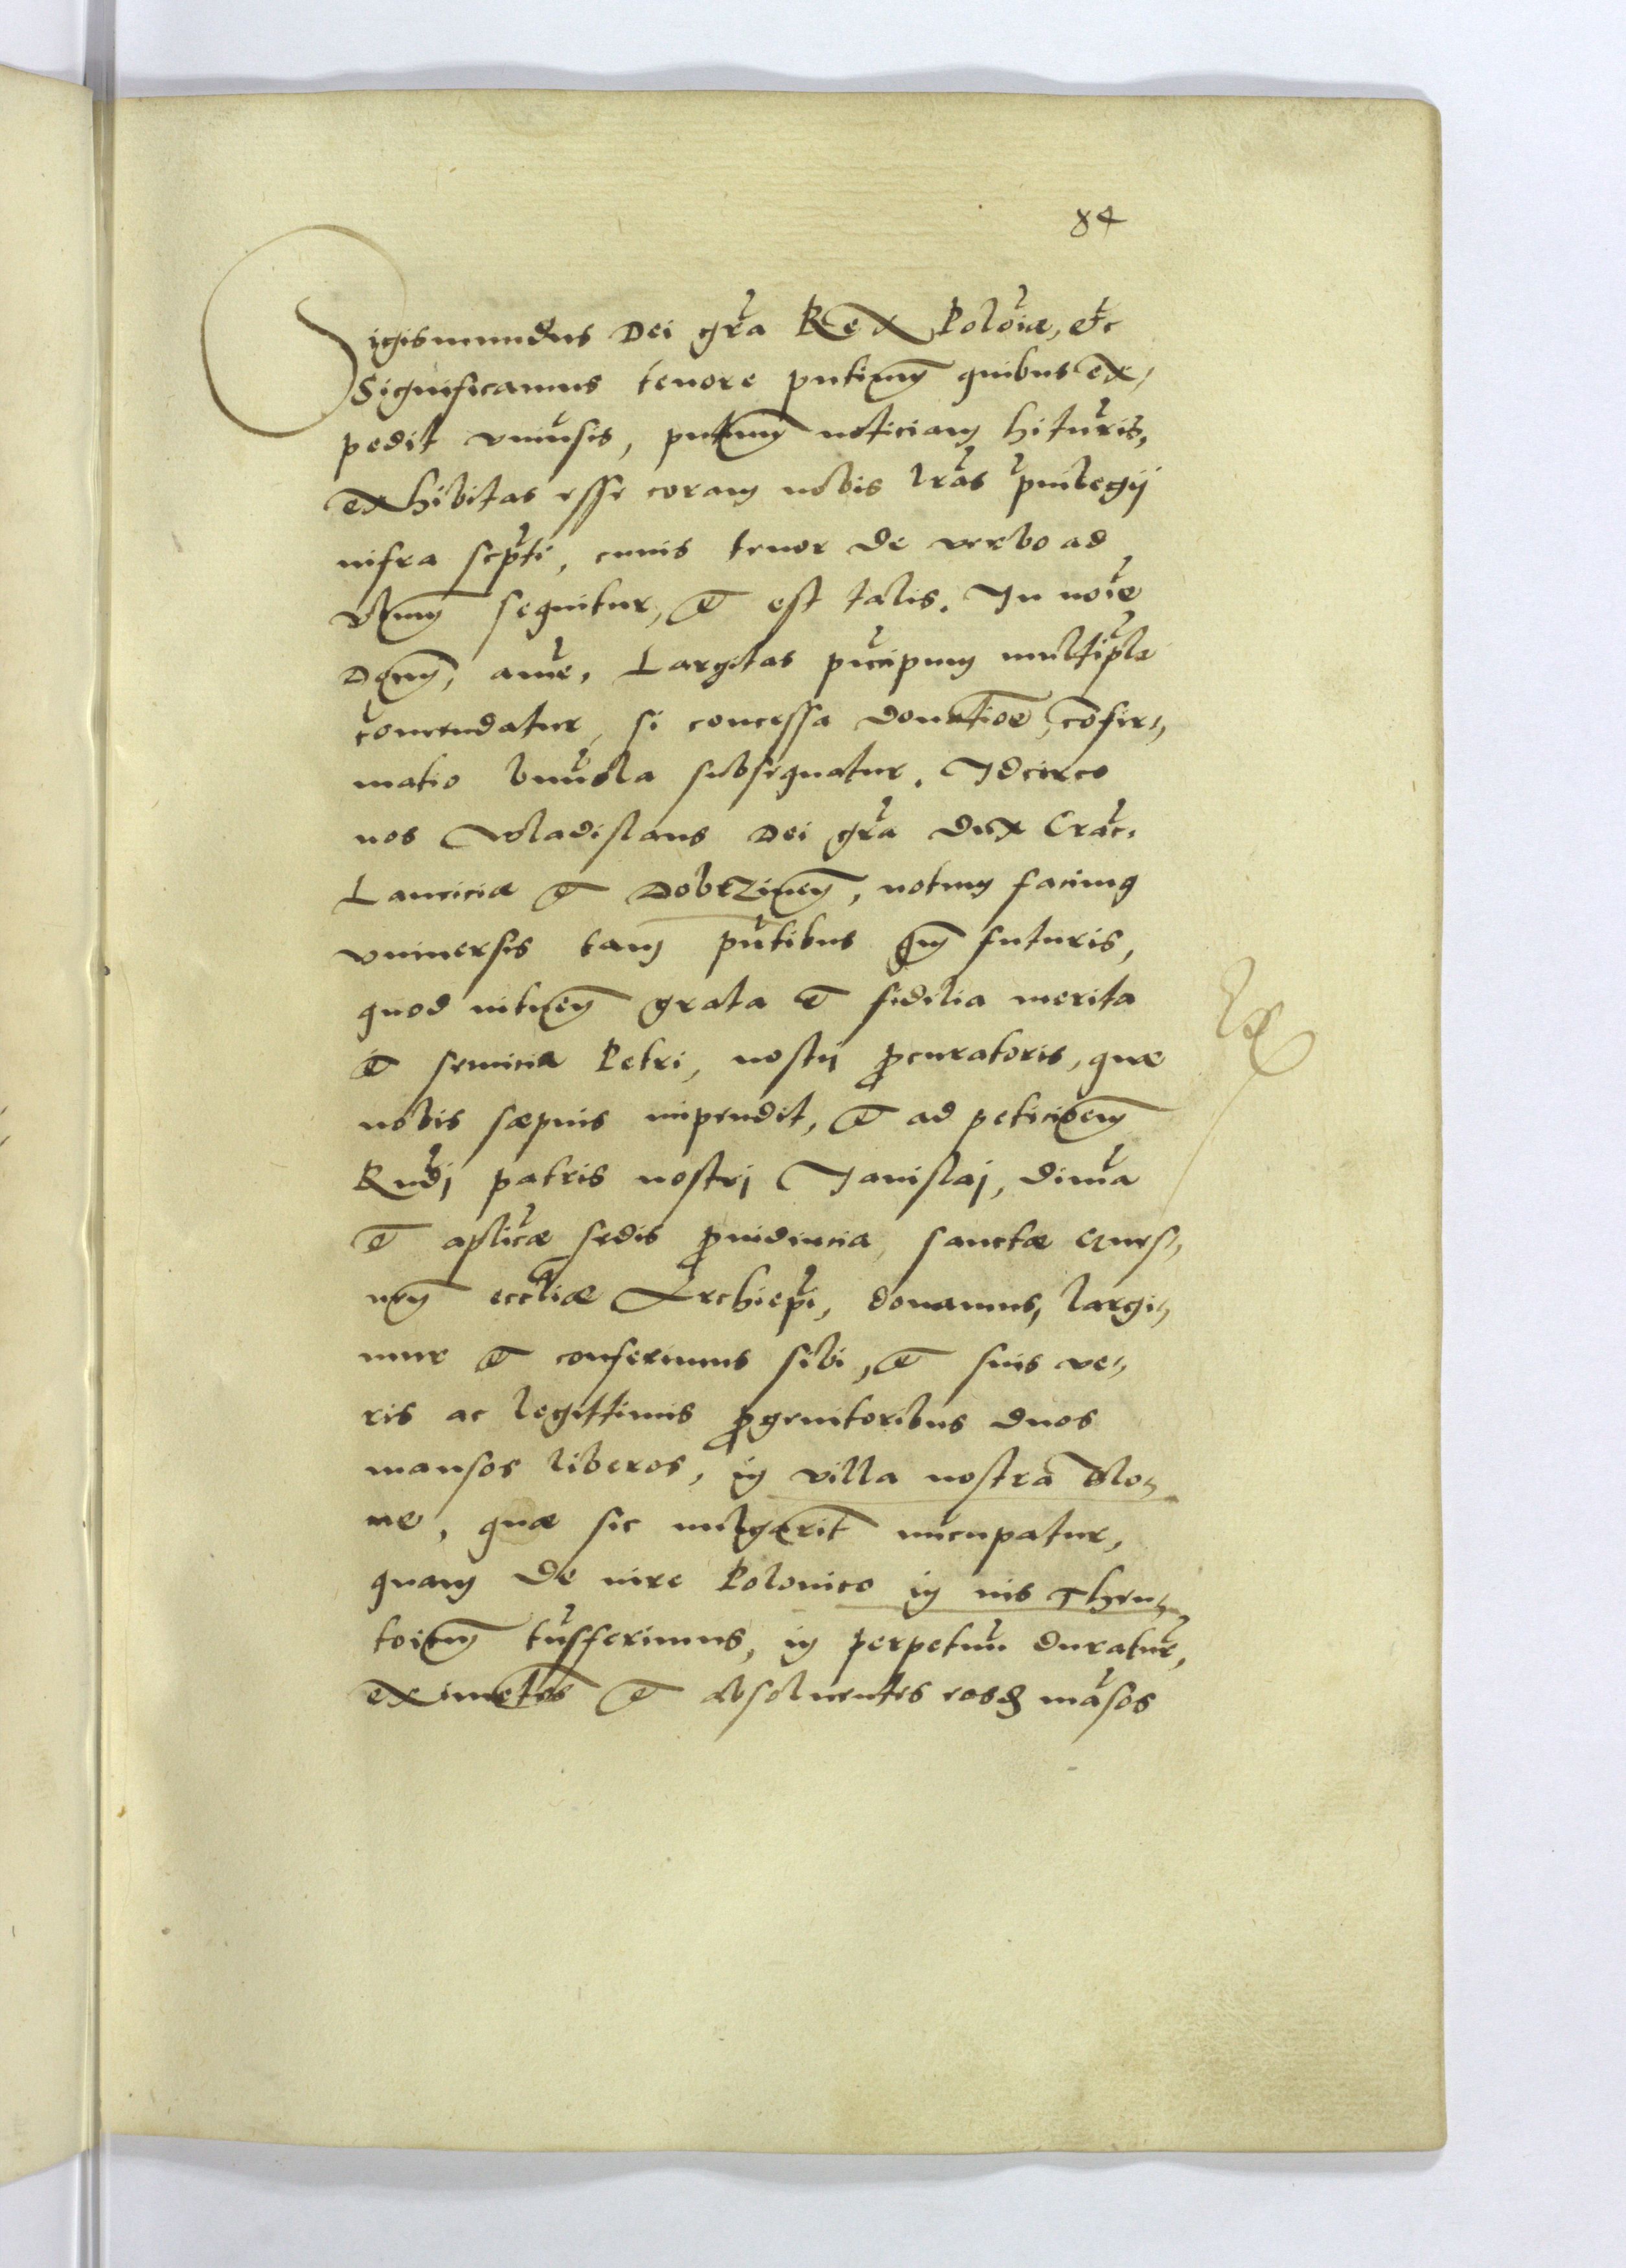 84
Sigismundus Dei gra Rex Poloiæ, etc
Significamus tenore pntium quibus ex,
pedit vniusis, pntium noticiam hituris,
exhibitas esse coram nobis lras priuilegij
infra scpti, cuius tenor de verbo ad
vbum sequitur, et est talis. In noie
Domini, ame, Largitas pncipum multiple
comendatur, si concessa donatioe, cofir,
matio bniuola subsequatur. Idcirco
nos Wladislaus Dei gra dux Crac.
Lanciciæ et Dobrzinen, notum facimus
vniuersis tam pntibus qm futuris,
quod intuen grata et fidelia merita
et seruicia Petri, nostri procuratoris, quæ
nobis sæpius impendit, et ad peticionem
Rndj patris nostrj Janislaj, diuina
et aplicæ sedis prouidencia, sanctæ Gnes,
nen eccliæ Archiepi, donamus, largi,
mur et conferimus sibi, et suis ve,
ris ac legittimis progenitoribus duos
mansos liberos, in villa nostra Blo,
ne, quæ sic uulgarit nucupatur,
quam de iure Polonico in ius Theu,
toicum tusferimus, in perpetuu duratur,
eximetes et absoluentes eosdem masos